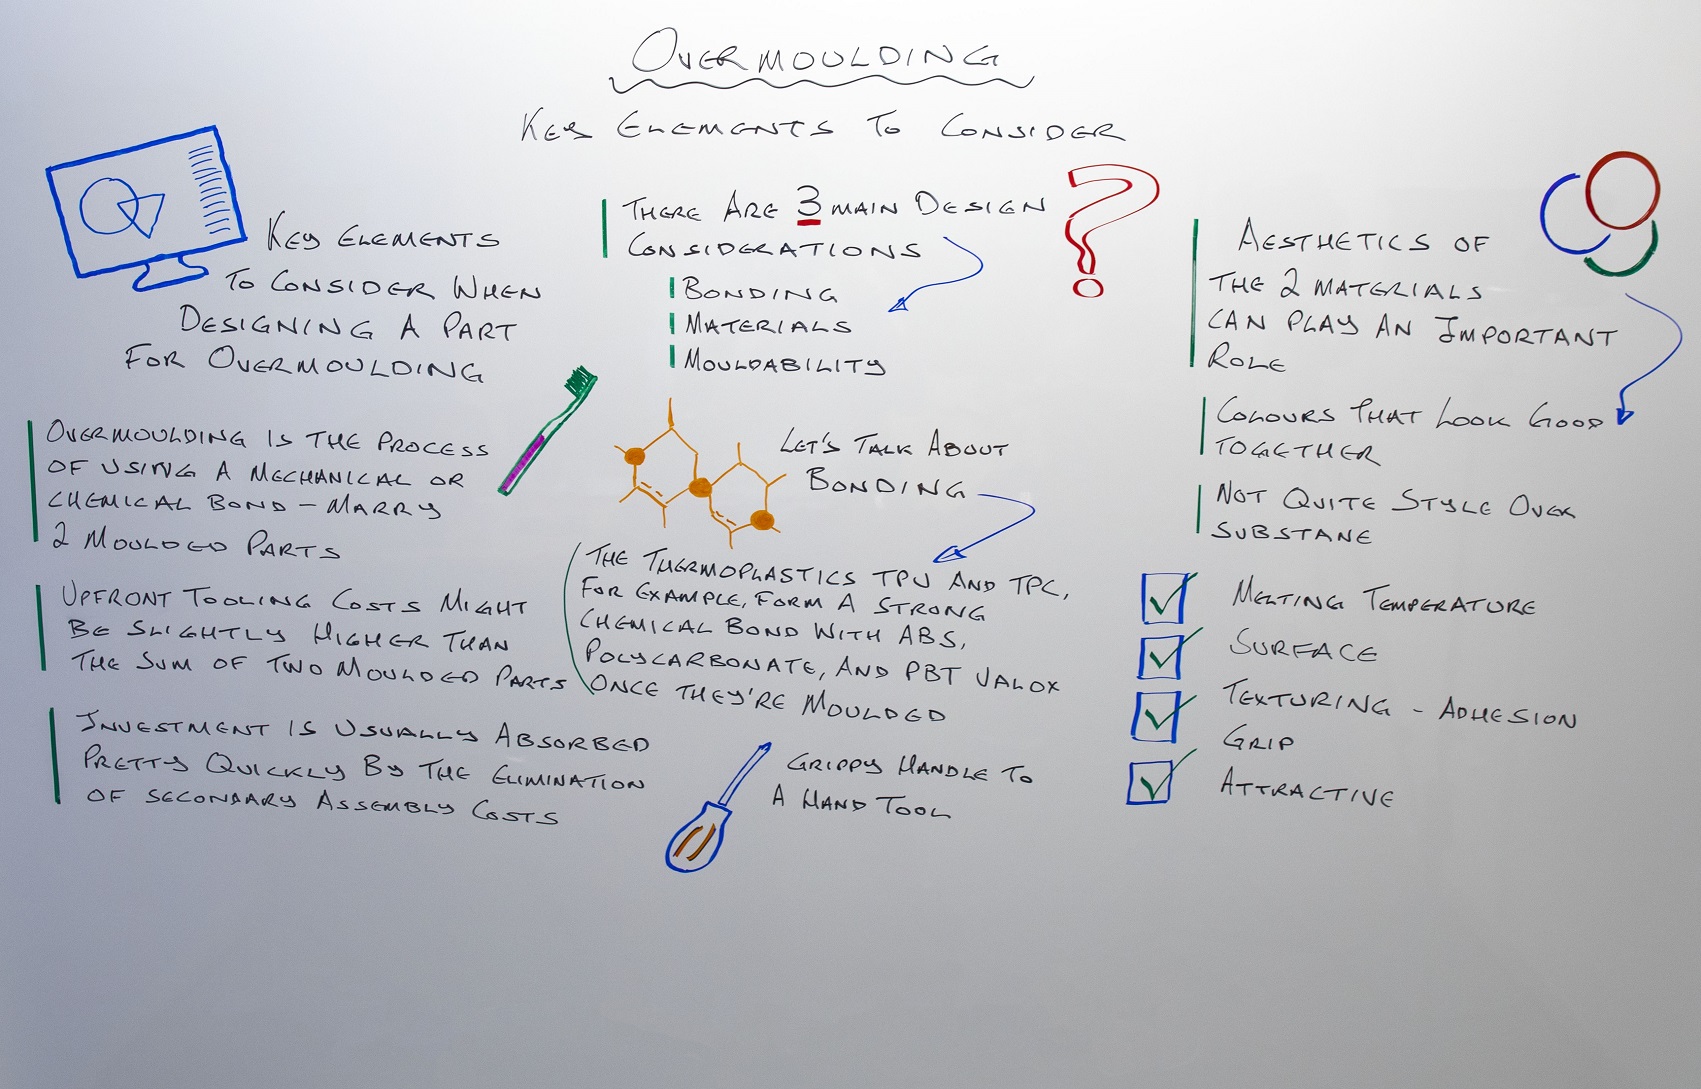 OVERMOULDING
KEY ELEMENTS TO CONSIDER
KEY ELEMENTS
TO CONSIDER WHEN
DESIGNING A PART
FOR OVERMOULDING
OVERMOULDING IS THE PROCESS
OF USING A MECHANICAL OR
CHEMICAL BOND - MARRY
2 MOULDED PARTS
UPFRONT TOOLING COSTS MIGHT
BE SLIGHTLY HIGHER THAN
THE SUM OF TWO MOULDED PARTS
INVESTMENT IS USUALLY ABSORBED
PRETTY QUICKLY BY THE ELIMINATION
OF SECONDARY ASSEMBLY COSTS
THERE ARE 3 MAIN DESIGN
CONSIDERATIONS
BONDING
MATERIALS
MOULDABILITY
?
LET'S TALK ABOUT
BONDING
THE THERMOPLASTICS TPU AND TPC,
FOR EXAMPLE, FORM A STRONG
CHEMICAL BOND WITH ABS,
POLYCARBONATE, AND PBT VALOX
ONCE THEY'RE MOULDED
GRIPPY HANDLE TO
A HAND TOOL
AESTHETICS OF
THE 2 MATERIALS
CAN PLAY AN IMPORTANT
ROLE
COLOURS THAT LOOK GOOD
TOGETHER
NOT QUITE STYLE OVER
SUBSTANE
MELTING TEMPERATURE
SURFACE
TEXTURING - ADHESION
GRIP
ATTRACTIVE